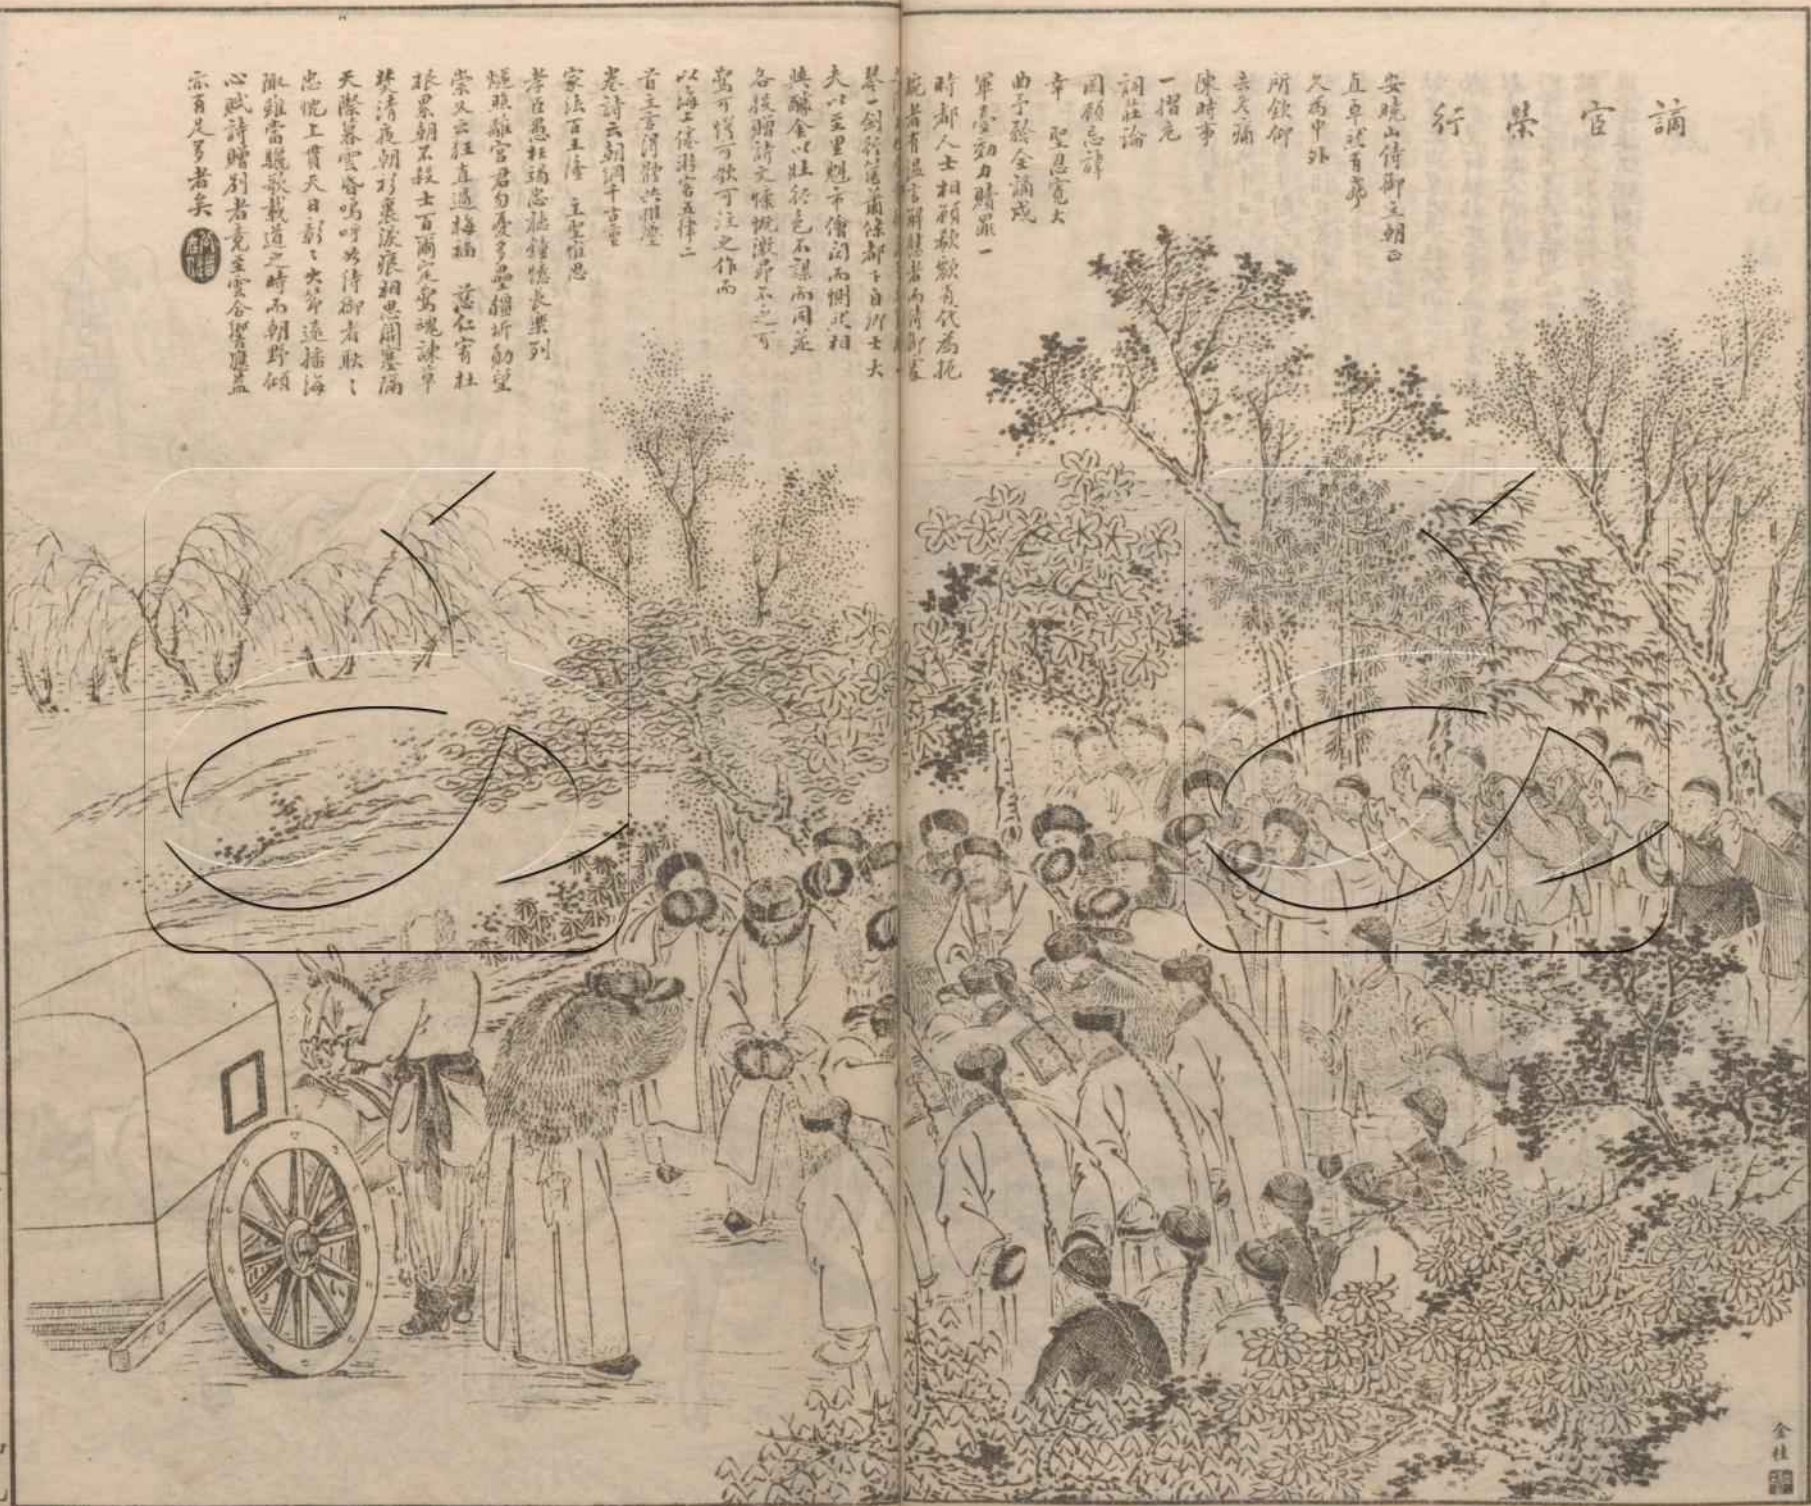 謫官榮行
安曉山侍御立朝正
直卓然有聲
久為中外
所欽仰
去冬疏
陳時事
一摺危
詞莊論
罔顧忌諱
幸 聖恩寬大
曲予矜全謫戍
軍臺効力贖罪一
時都人士相顧欷歔有代為扼
腕者有溫言解慰者而侍御
琴一劍行篋蕭條都下自士大
夫以至里魁市儈聞而惻然相
與醵金以壯行色不謀而同並
各投贈詩文慷慨激昂不之可
驚可愕可歌可泣之作而
以海上倦游客五律二
首立言得體洪推壓
卷詩云朝綱千古重
家法百王隆 主聖惟思
孝臣愚枉竭忠聽鐘懷長樂列
炬照離宮君勿憂多壘疆圻勛望
崇又云狂直過梅福 慈仁宥杜
根累朝不殺士百爾定驚魂諫草
焚清夜朝衫裹淚痕相思關塞隔
天際暮雲昏嗚呼如侍御者耿耿
忠忱上貫天日彰彰大節遠播海
陬雖當驪歌載道之時而朝野傾
心賦詩贈別者竟至雲合響應蓋
亦有足多者矣
金桂